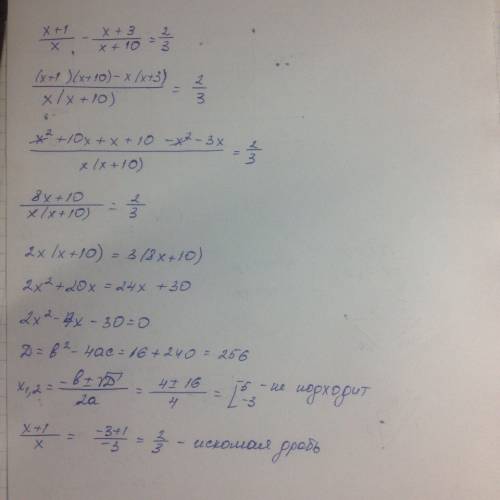 (x+1)/x - (x+3)/(x+10) = 2/3
((x+1)(x+10) - x(x+3))/(x(x+10)) = 2/3
(x² + 10x + x + 10 - x² - 3x)/(x(x+10)) = 2/3
(8x+10)/(x(x+10)) = 2/3
2x(x+10) = 3(8x+10)
2x² + 20x = 24x + 30
2x² - 4x - 30 = 0
D = b² - 4ac = 16 + 240 = 256
x₁,₂ = (-b ± √D)/2a = (4 ± 16)/4 = [5 - не подходит
-3
(x+1)/x = (-3+1)/-3 = 2/3 - искомая дробь